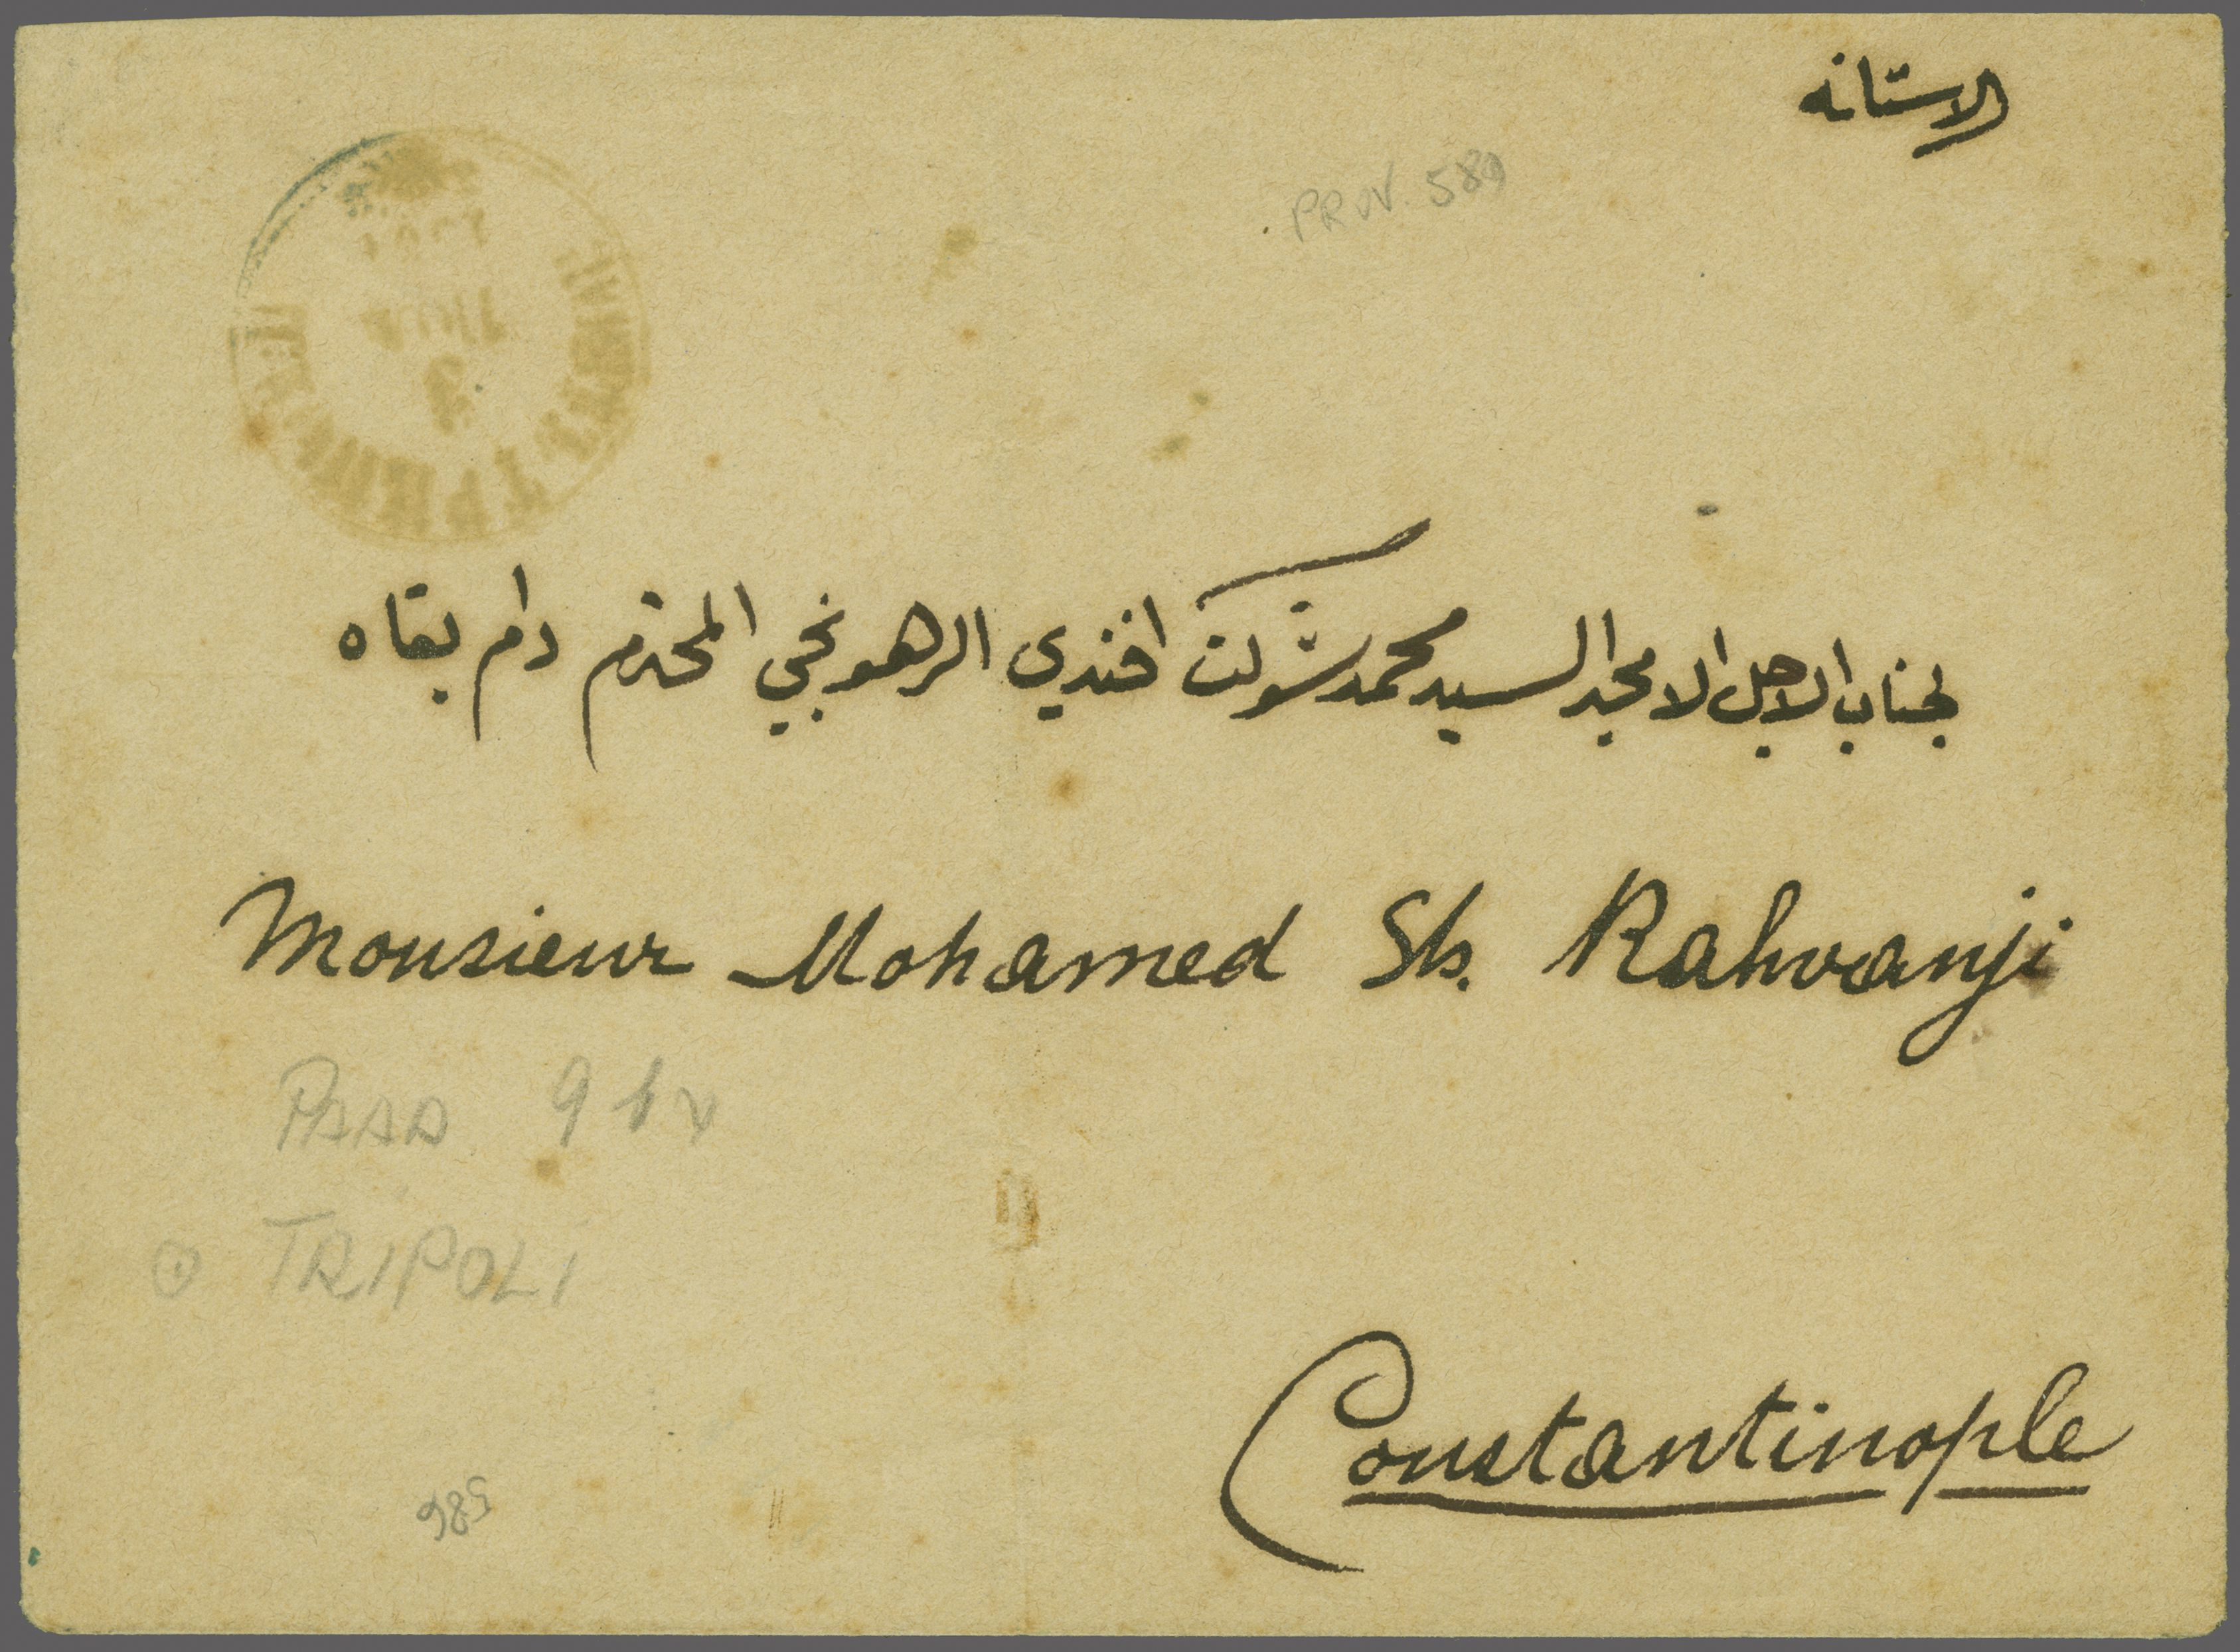 الاستانه
PROV. 589
لجناب الاجل الامجد السيد محمد شوكت افندي الرهونجي المحترم دام بقاه
Monsieur Mohamed Sh. Rahvanji
TRIPOLI
Constantinople
586